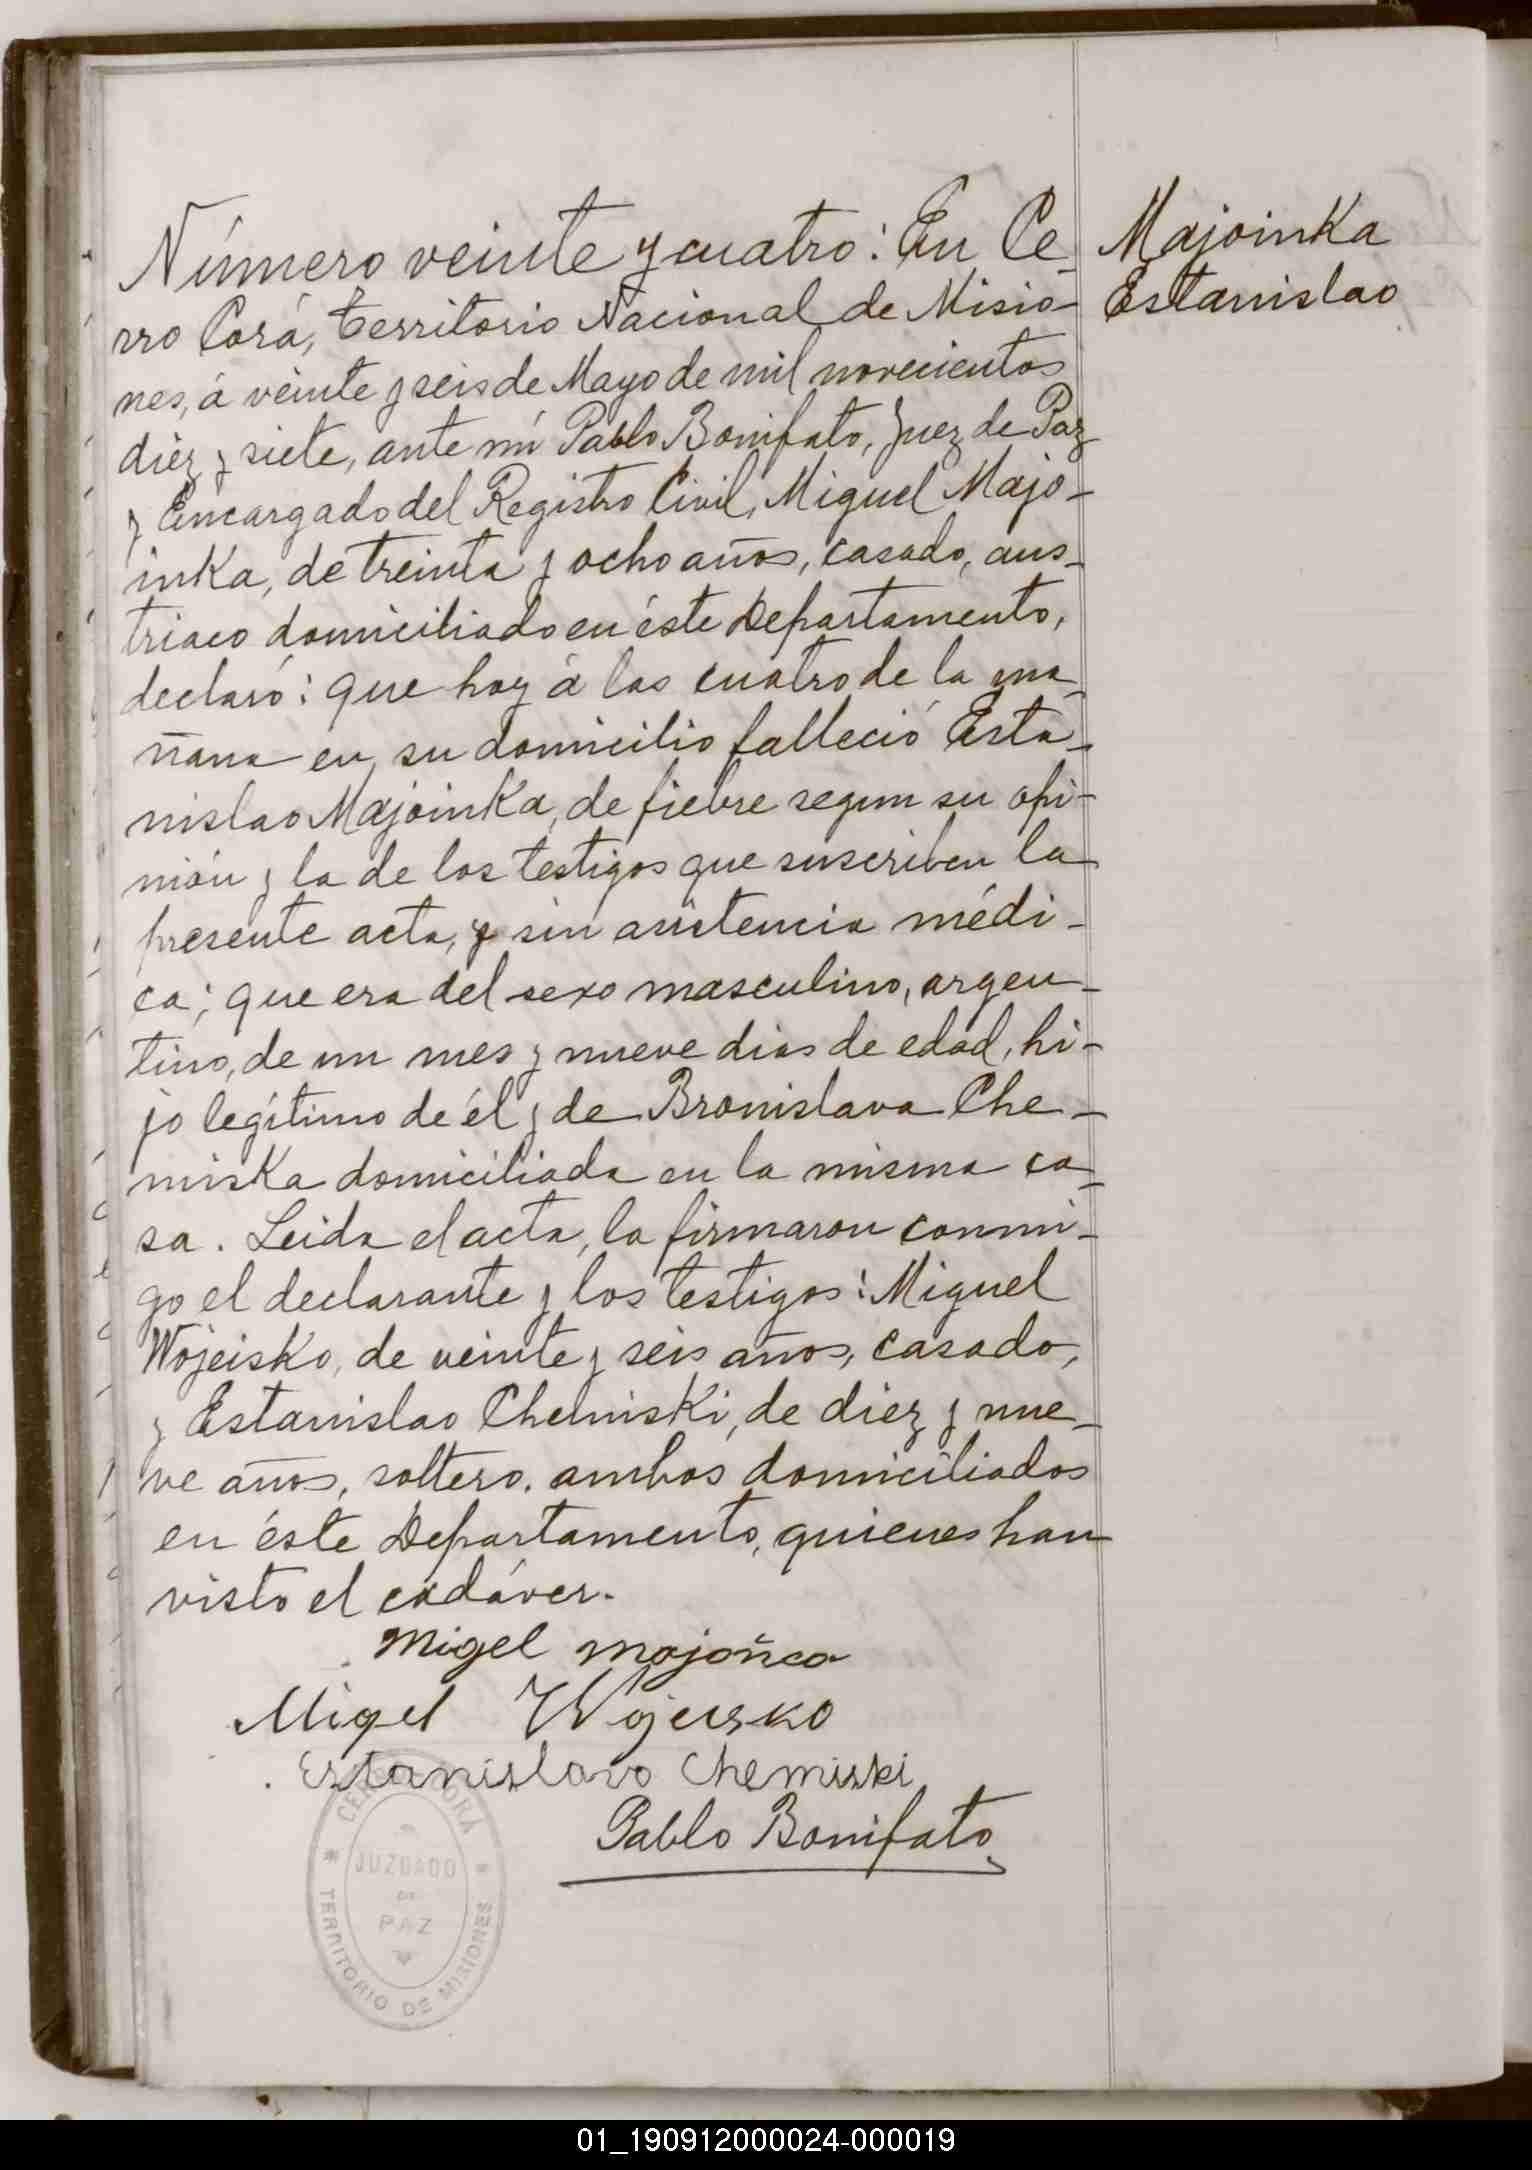 Número veinte y cuatro: En Ce-
rro Corá, Territorio Nacional de Misio-
nes, á veinte y seis de Mayo de mil novecientos
diez y siete, ante mí Pablo Bonifato, Juez de Paz
y Encargado del Registro Civil, Miguel Majo-
inka, de treinta y ocho años, casado, aus-
triaco domiciliado en éste Departamento,
declaró: que hoy á las cuatro de la ma-
ñana en su domicilio falleció Esta-
nislao Majoinka, de fiebre segun su opi-
nión y la de los testigos que suscriben la
presente acta, y sin asistencia médi-
ca; que era del sexo masculino, argen-
tino, de un mes y nueve dias de edad, hi-
jo legítimo de él y de Bronislava Che-
miska domiciliada en la misma ca-
sa. Leida el acta, la firmaron conmi-
go el declarante y los testigos: Miguel
Wojeisko, de veinte y seis años, casado,
y Estanislao Chemiski, de diez y nue-
ve años, soltero. ambos domiciliados
en éste Departamento, quienes han
visto el cadáver.
Majoinka
Estanislao
Migel Majoñca
Migel Wojeisko
Estanislavo Chemiski
Pablo Bonifato
CERRO CORÁ
JUZGADO
DE
PAZ
TERRITORIO DE MISIONES
01_190912000024-000019